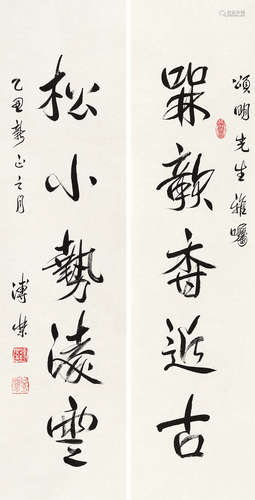 頌明先生雅囑
槑欹香近古
松小勢凌雲
乙丑新正之月
溥傑